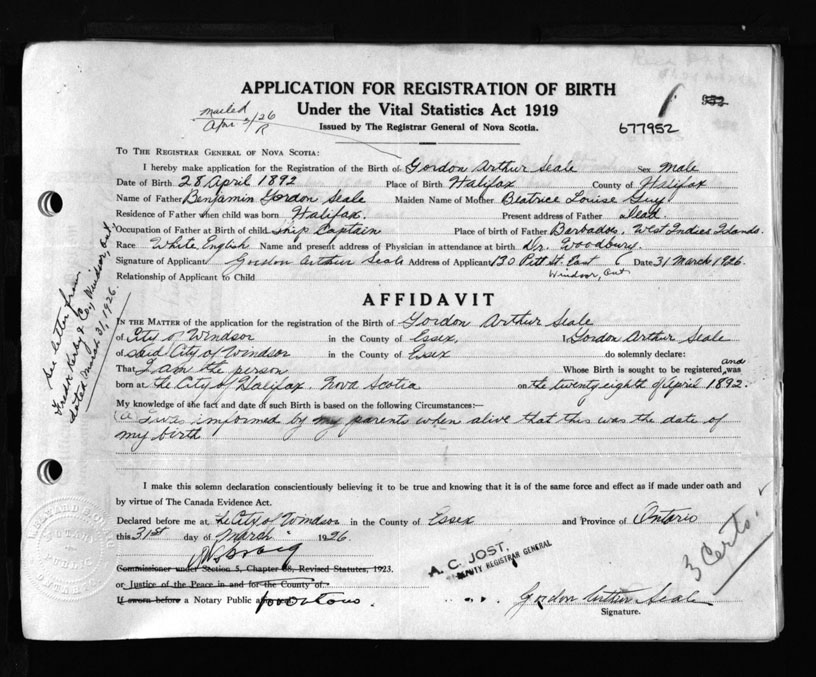 APPLICATION FOR REGISTRATION OF BIRTH
Under the Vital Statistics Act 1919
Issued by The Registrar General of Nova Scotia.
mailed
Apr 2/26
R
677952
TO THE REGISTRAR GENERAL OF NOVA SCOTIA:
I hereby make application for the Registration of the Birth of Gordon Arthur Seale Sex Male
Date of Birth 28 April 1892 Place of Birth Halifax County of Halifax
Name of Father Benjamin Gordon Seale Maiden Name of Mother Beatrice Louise Guy
Residence of Father when child was born Halifax. Present address of Father Dead.
Occupation of Father at Birth of child Ship Captain Place of birth of Father Barbados, West Indies Islands.
Race White English Name and present address of Physician in attendance at birth Dr. Woodbury.
Signature of Applicant Gordon Arthur Seale Address of Applicant 130 Pitt St. East Date 31 March 1926.
Windsor, Ont
Relationship of Applicant to Child
AFFIDAVIT
IN THE MATTER of the application for the registration of the Birth of Gordon Arthur Seale
of City of Windsor in the County of Essex, I Gordon Arthur Seale
of said City of Windsor in the County of Essex do solemnly declare:
That I am the person Whose Birth is sought to be registered, and was
born at the City of Halifax, Nova Scotia on the twenty eighth of April 1892.
My knowledge of the fact and date of such Birth is based on the following Circumstances:—
(a) I was informed by my parents when alive that this was the date of
my birth
I make this solemn declaration conscientiously believing it to be true and knowing that it is of the same force and effect as if made under oath and
by virtue of The Canada Evidence Act.
Declared before me at the City of Windsor in the County of Essex and Province of Ontario
this 31st day of March 1926.
Commissioner under Section 5, Chapter 38, Revised Statutes, 1923.
or Justice of the Peace in and for the County of
If sworn before a Notary Public
A. C. JOST.
DEPUTY REGISTRAR GENERAL
Gordon Arthur Seale
Signature.
3 Certs.
See letter from
Kerby & Co., Windsor, Ont.
dated March 31, 1926.